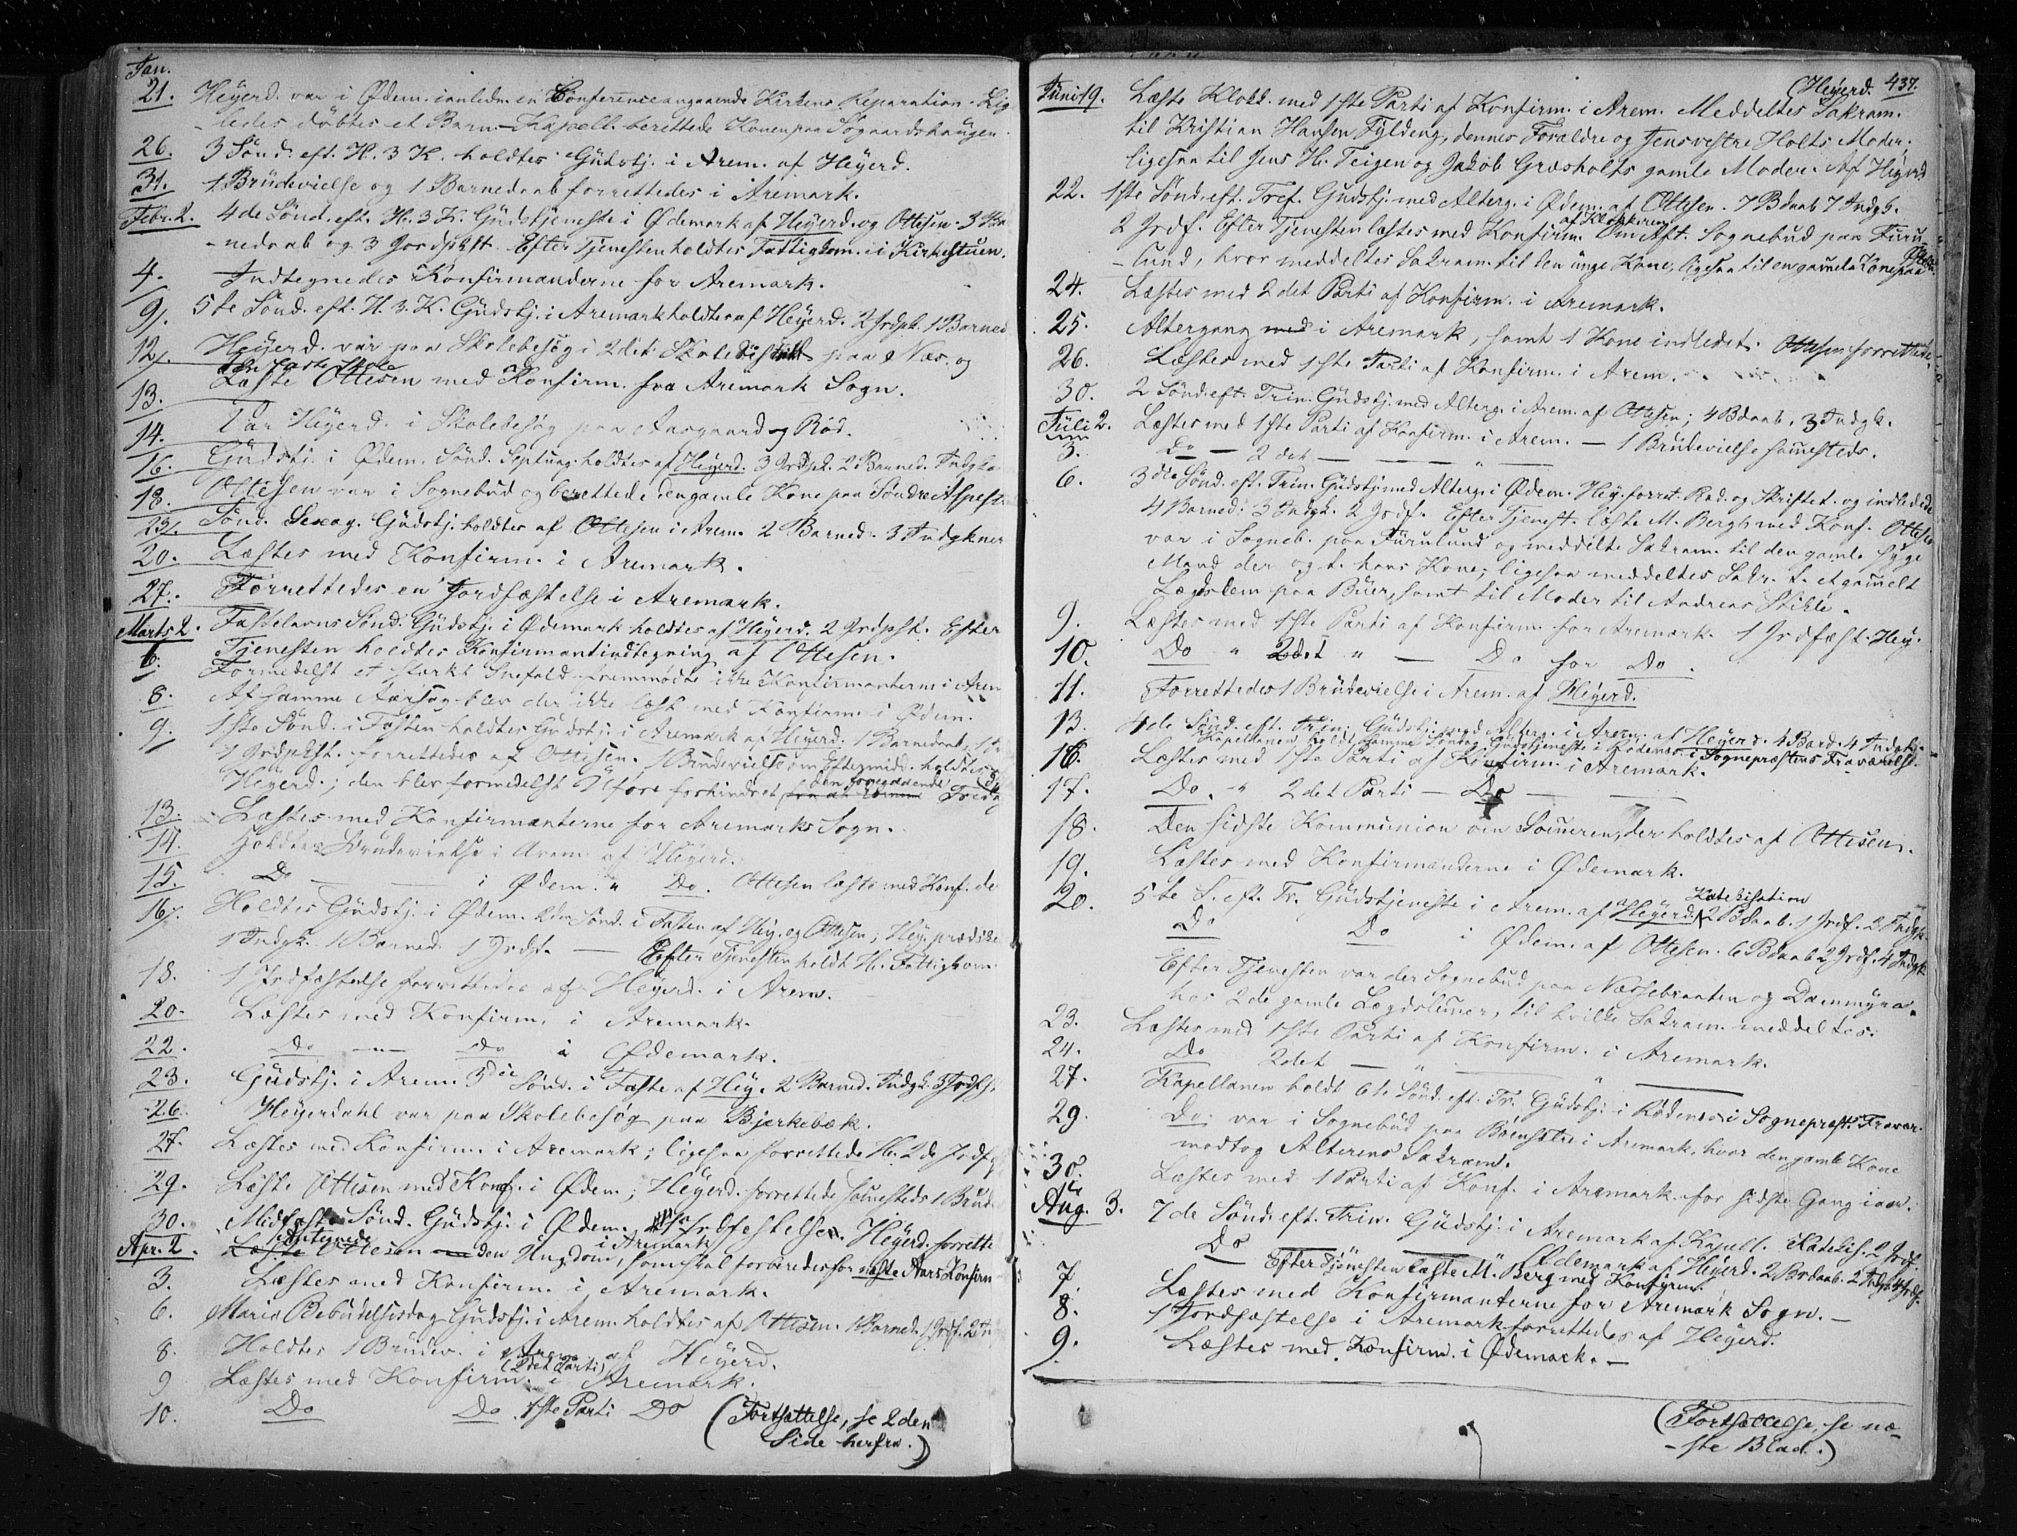 Jan.
21. Heÿerd. var i Ødem. i anledn. en Conference angaaende Kirkens Reparation. Lig-
-ledes døbtes et Barn. Kapell. berettede Konen paa Søgaardshaugen.
26. 3 Sönd. eft. H. 3 K. holdtes Gudstj. i Arem. af Heÿerd.
31. 1 Brüdevielse og 1 Barnedaab forrettedes i Aremark.
Febr. 2. 4de Sönd. eft. H. 3 K. Gudstjeneste i Ødemark af Heÿerd. og Ottesen. 3 Ba-
-nedaab og 3 Jordpkst. Efter Tjenesten holdtes Fattigkom. i Kirkestuen.
4. Indtegnedes Konfirmanderne for Aremark.
9. 5te Sönd. eft. H. 3. K. Gudstj. i Aremark holdtes af Heÿerd. 2 Jrdpk. 1 Barned
12. Heÿerd. var paa Skolebesøg i 2det Skoledistrikt paa Næs og
13. Læste Ottesen med Konfirm. fra Aremark Sogn.
14. Var Heÿerd. i Skolebesøg paa Aasgaard og Röd.
16. Gudstj. i Ødem. Sönd. Septuag. holdtes af Heÿerd. 3 Jrdpk. 2 Barned. Indgk.
18. Ottesen var i Sognebud og berettede den gamle Kone paa Söndre Aspesti
23. Sönd. Sexag. Gudstj. holdtes af Ottesen i Arem. 2 Barned. 3 Indgkner
20. Læstes med Konfirm. i Aremark.
27. Forrettedes en Jordfæstelse i Aremark.
Marts 2. Fastelavns Sönd. Gudstj. i Ødemark holdtes af Heÿerd. 2 Jrdpkst. Efter
Tjenesten holdtes Konfirmantindtegning af Ottesen.
6. Formedelst et stærkt Snefald fremmødte ikke Konfirmanterne i Arem
8. Af samme Aarsag blev der ikke læst med Konfirm. i Ødem.
9. 1ste Sönd. i Fasten holdtes Gudstj. i Aremark af Heÿerd. 1 Barnedaab,
1 Jrdpkst. forrettedes af Ottesen. 1 Brüdevielse om Eftermidd. holdtes
Heÿerd.; den blev formedelst Uføre forhindret den foregaaende Fredag
13. Læstes med Konfirmanterne for Aremarks Sogn.
14. Holdtes Brüdevielse i Arem. af Heÿerd.
15. Do — i Ødem. " Do. Ottesen læste med Konf. de
16. Holdtes Gudstj. i Ødem. 2den Sönd. i Fasten af Heÿ. og Ottesen; Heÿ. prædike
1 Indgk. 1 Barned. 1 Jrdfst. — Efter Tjenesten holdt H. Fattigkom.
18. 1 Jrdfæstelse forrettedes af Heÿerd. i Arem.
20. Læstes med Konfirm. i Aremark.
22. Do — Do i Ødemark.
23. Gudstj. i Arem. 3die Sönd. i Faste af Heÿ. 2 Barned. Indgk. 3 Jrdfst.
26. Heÿerdahl var paa Skolebesøg paa Bjerkebæk.
27. Læstes med Konfirm. i Aremark; ligesaa forrettede H. 2de Jrdf
29. Læste Ottesen med Konf. i Ødem; Heÿerd. forrettede samesteds 1 Brüd
30. Midfaste Sönd. Gudstj. i Ødem. Jrdfestelse. Heÿerd. forrette
Apr. 2. Antegnede Ottesen den Ungdom i Aremark, som skal forberedes for næste Aars Konfirm
3. Læstes med Konfirm. i Aremark.
6. Mariæ Bebudelsesdag Gudstj. i Arem. holdtes af Ottesen. 1 Barned. 1 Jrdf. 2 In
8. Holdtes 1 Brüdev. i Arem. af Heÿerd.
9 Læstes med Konfirm. (2det Parti) i Aremark.
10. Do Do 1ste Parti Do (Fortsættelse, se 2den
Side herfra.)
(Heÿerd. 437.
Juni 19. Læste Klokk. med 1ste Parti af Konfirm. i Arem. Meddeltes Sakram.
til Kristian Hansen Fylding, dennes Foraldre og Jens vestre Holts Moder;
ligesaa til Jens H. Teigen og Jakob Græsholts gamle Moder. Af Heÿerd
22. 1ste Sönd. eft. Tref. Gudstj. med Alterg. i Ødem. af Ottesen. 7 Bdaab 7 Indgk.
2 Jrdf. Efter Tjenesten læstes med Konfirm. af Klokkeren Om Aft. Sognebud paa Furu-
-lund, hvor meddeltes Sakram. til den unge Kone, ligesaa til en gammel Kone paa
24. Læstes med 2det Parti af Konfirm. i Aremark.
25. Altergang i Aremark, samt 1 Kone indledet. Ottesen forrettede.
26. Læstes med 1ste Parti af Konfirm. i Arem.
30. 2 Sönd. eft. Trin. Gudstj. med Alterg. i Arem. af Ottesen; 4 Bdaab, 3 Indgk.
Juli 2. Læstes med 1ste Parti af Konfirm. i Arem. — 1 Brüdevielse samesteds.
3. Do — 2det — "
6. 3die Sönd. eft. Trin. Gudstj. med Alterg. i Ødem. Heÿ. forret. Præd. og Skriftet. og indledede
4 Barned. 3 Indgk. 2 Jrdf. Efter Tjenest. læste M. Berg med Konf. Ottesen
var i Sogneb. paa Furulund og meddelte Sakram. til den gamle syge
Mand der og t. hans Kone; ligesaa meddeltes Sakr. t. et gammelt
Lægdslem paa Buer, samt til Moder til Andreas Stikle.
9. Læstes med 1ste Parti af Konfirm. for Aremark. 1 Jrdfæst. Heÿ.
10. Do " 2det " — Do for Do.
11. Forrettedes 1 Brüdevielse i Arem. af Heÿerd.
13. 4de Sönd. eft. Trin. Gudstj. med Alterg. i Arem. af Heÿerd. 4 Bard. 4 Indgk.
Kapellanen holdt samme Søndag Gudstjeneste i Rødenæs i Sogneprestens Fraværelse.
16. Læstes med 1ste Parti af Konfirm. i Aremark.
17. Do. " 2det Parti — Do —
18. Den sidste Kommunion om Someren, der holdtes af Ottesen.
19. Læstes med Konfirmanderne i Ødemark.
20. 5te S. eft. Tr. Gudstjeneste i Arem. af Heÿerd. Katekisation 2 Bdaab. 1 Jrdf. 2 Indgk.
Do Do i Ødem. af Ottesen. 6 Bdaab 2 Jrdf. 4 Indgk
Efter Tjenesten var der Sognebud paa Næssebraaten og Dammyra
hos 2de gamle Lægdslemer, til hvilke Sakram. meddeltes.
23. Læstes med 1ste Parti af Konfirm. i Aremark.
24. Do 2det — " — "
27. Kapellanen holdt 6te Sönd. eft. Tr. Gudstj. i Rødenæs i Sognepræst. Fravær.
29. Do. var i Sognebud paa i Aremark, hvor den gamle Kone
modtog Alterens Sakram.
30. Læstes med 1 Parti af Konf. i Aremark for sidste Gang i aar.
Aug. 3. 7de Sönd. eft. Trin. Gudstj. i Aremark af Kapell. Katekis. 2 Jrdf.
Do — — Ødemark af Heÿerd. 2 Bdaab. 2 Indgk. 4 Jrdf.
Efter Tjenesten læste M. Berg med Konfirm.
7. Læstes med Konfirmanterne for Aremark Sogn. —
8. 1 Jordfæstelse i Aremark forrettedes af Heÿerd.
9. Læstes med Konfirm. i Ødemark. —
(Fortsættelse, se næ-
-ste Blad.)